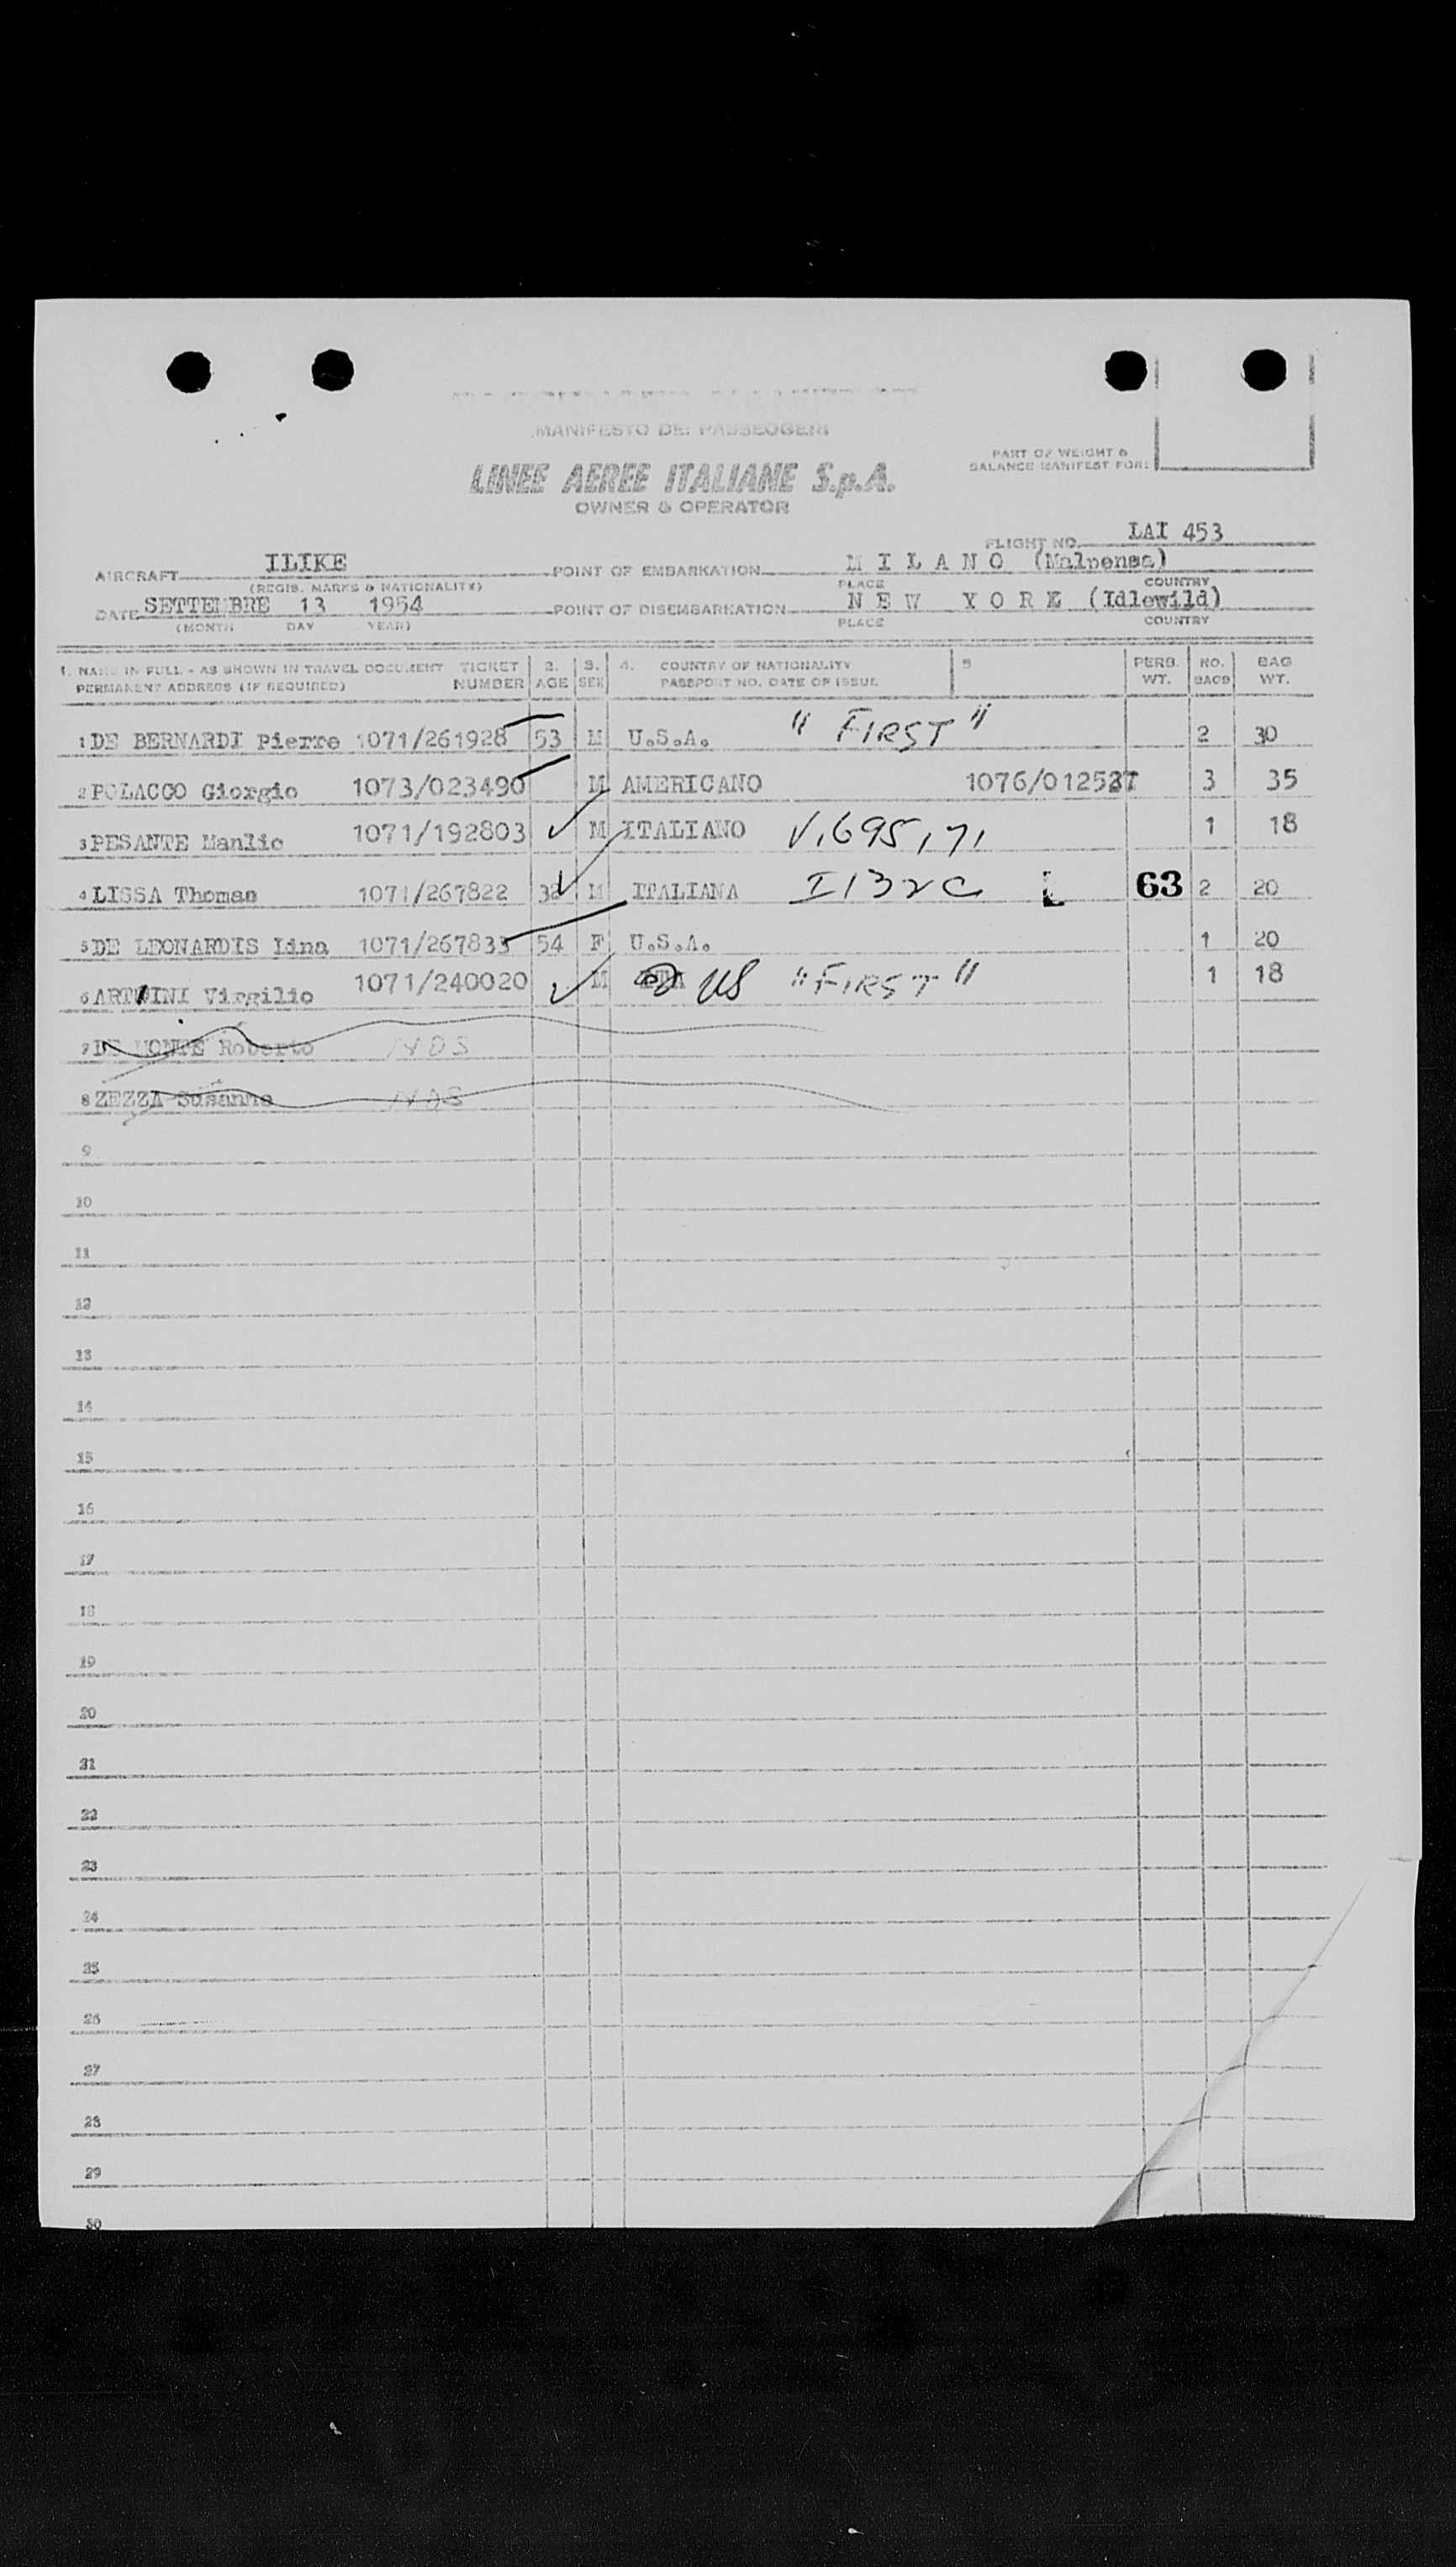 MANIFESTO DEI PASSEGGERI
PART OF WEIGHT &
BALANCE MANIFEST FOR:
LINEE AEREE ITALIANE S.p.A.
OWNER & OPERATOR
FLIGHT NO. LAI 453
AIRCRAFT ILIKE POINT OF EMBARKATION MILANO (Malpensa)
(REGIS. MARKS & NATIONALITY) PLACE COUNTRY
DATE SETTEMBRE 13 1954 POINT OF DISEMBARKATION NEW YORK (Idlewild)
(MONTH DAY YEAR) PLACE COUNTRY
1. NAME IN FULL - AS SHOWN IN TRAVEL DOCUMENT TICKET 2. 3. 4. COUNTRY OF NATIONALITY 5 PERS. NO. BAG
PERMANENT ADDRESS (IF REQUIRED) NUMBER AGE SEX PASSPORT NO. DATE OF ISSUE WT. BAGS WT.
1 DE BERNARDI Pierre 1071/261928 53 M U.S.A. "FIRST" 2 30
2 POLACCO Giorgio 1073/023490 M AMERICANO 1076/012537 3 35
3 PESANTE Manlio 1071/192803 M ITALIANO V,695,71 1 18
4 LISSA Thomas 1071/267822 38 M ITALIANA I132C L 63 2 20
5 DE LEONARDIS Lina 1071/267833 54 F U.S.A. 1 20
6 ARTUINI Virgilio 1071/240020 M US "FIRST" 1 18
7 DE MONTE Roberto NOS
8 ZEZZA Susanna NOS
9
10
11
12
13
14
15
16
17
18
19
20
21
22
23
24
25
26
27
28
29
30